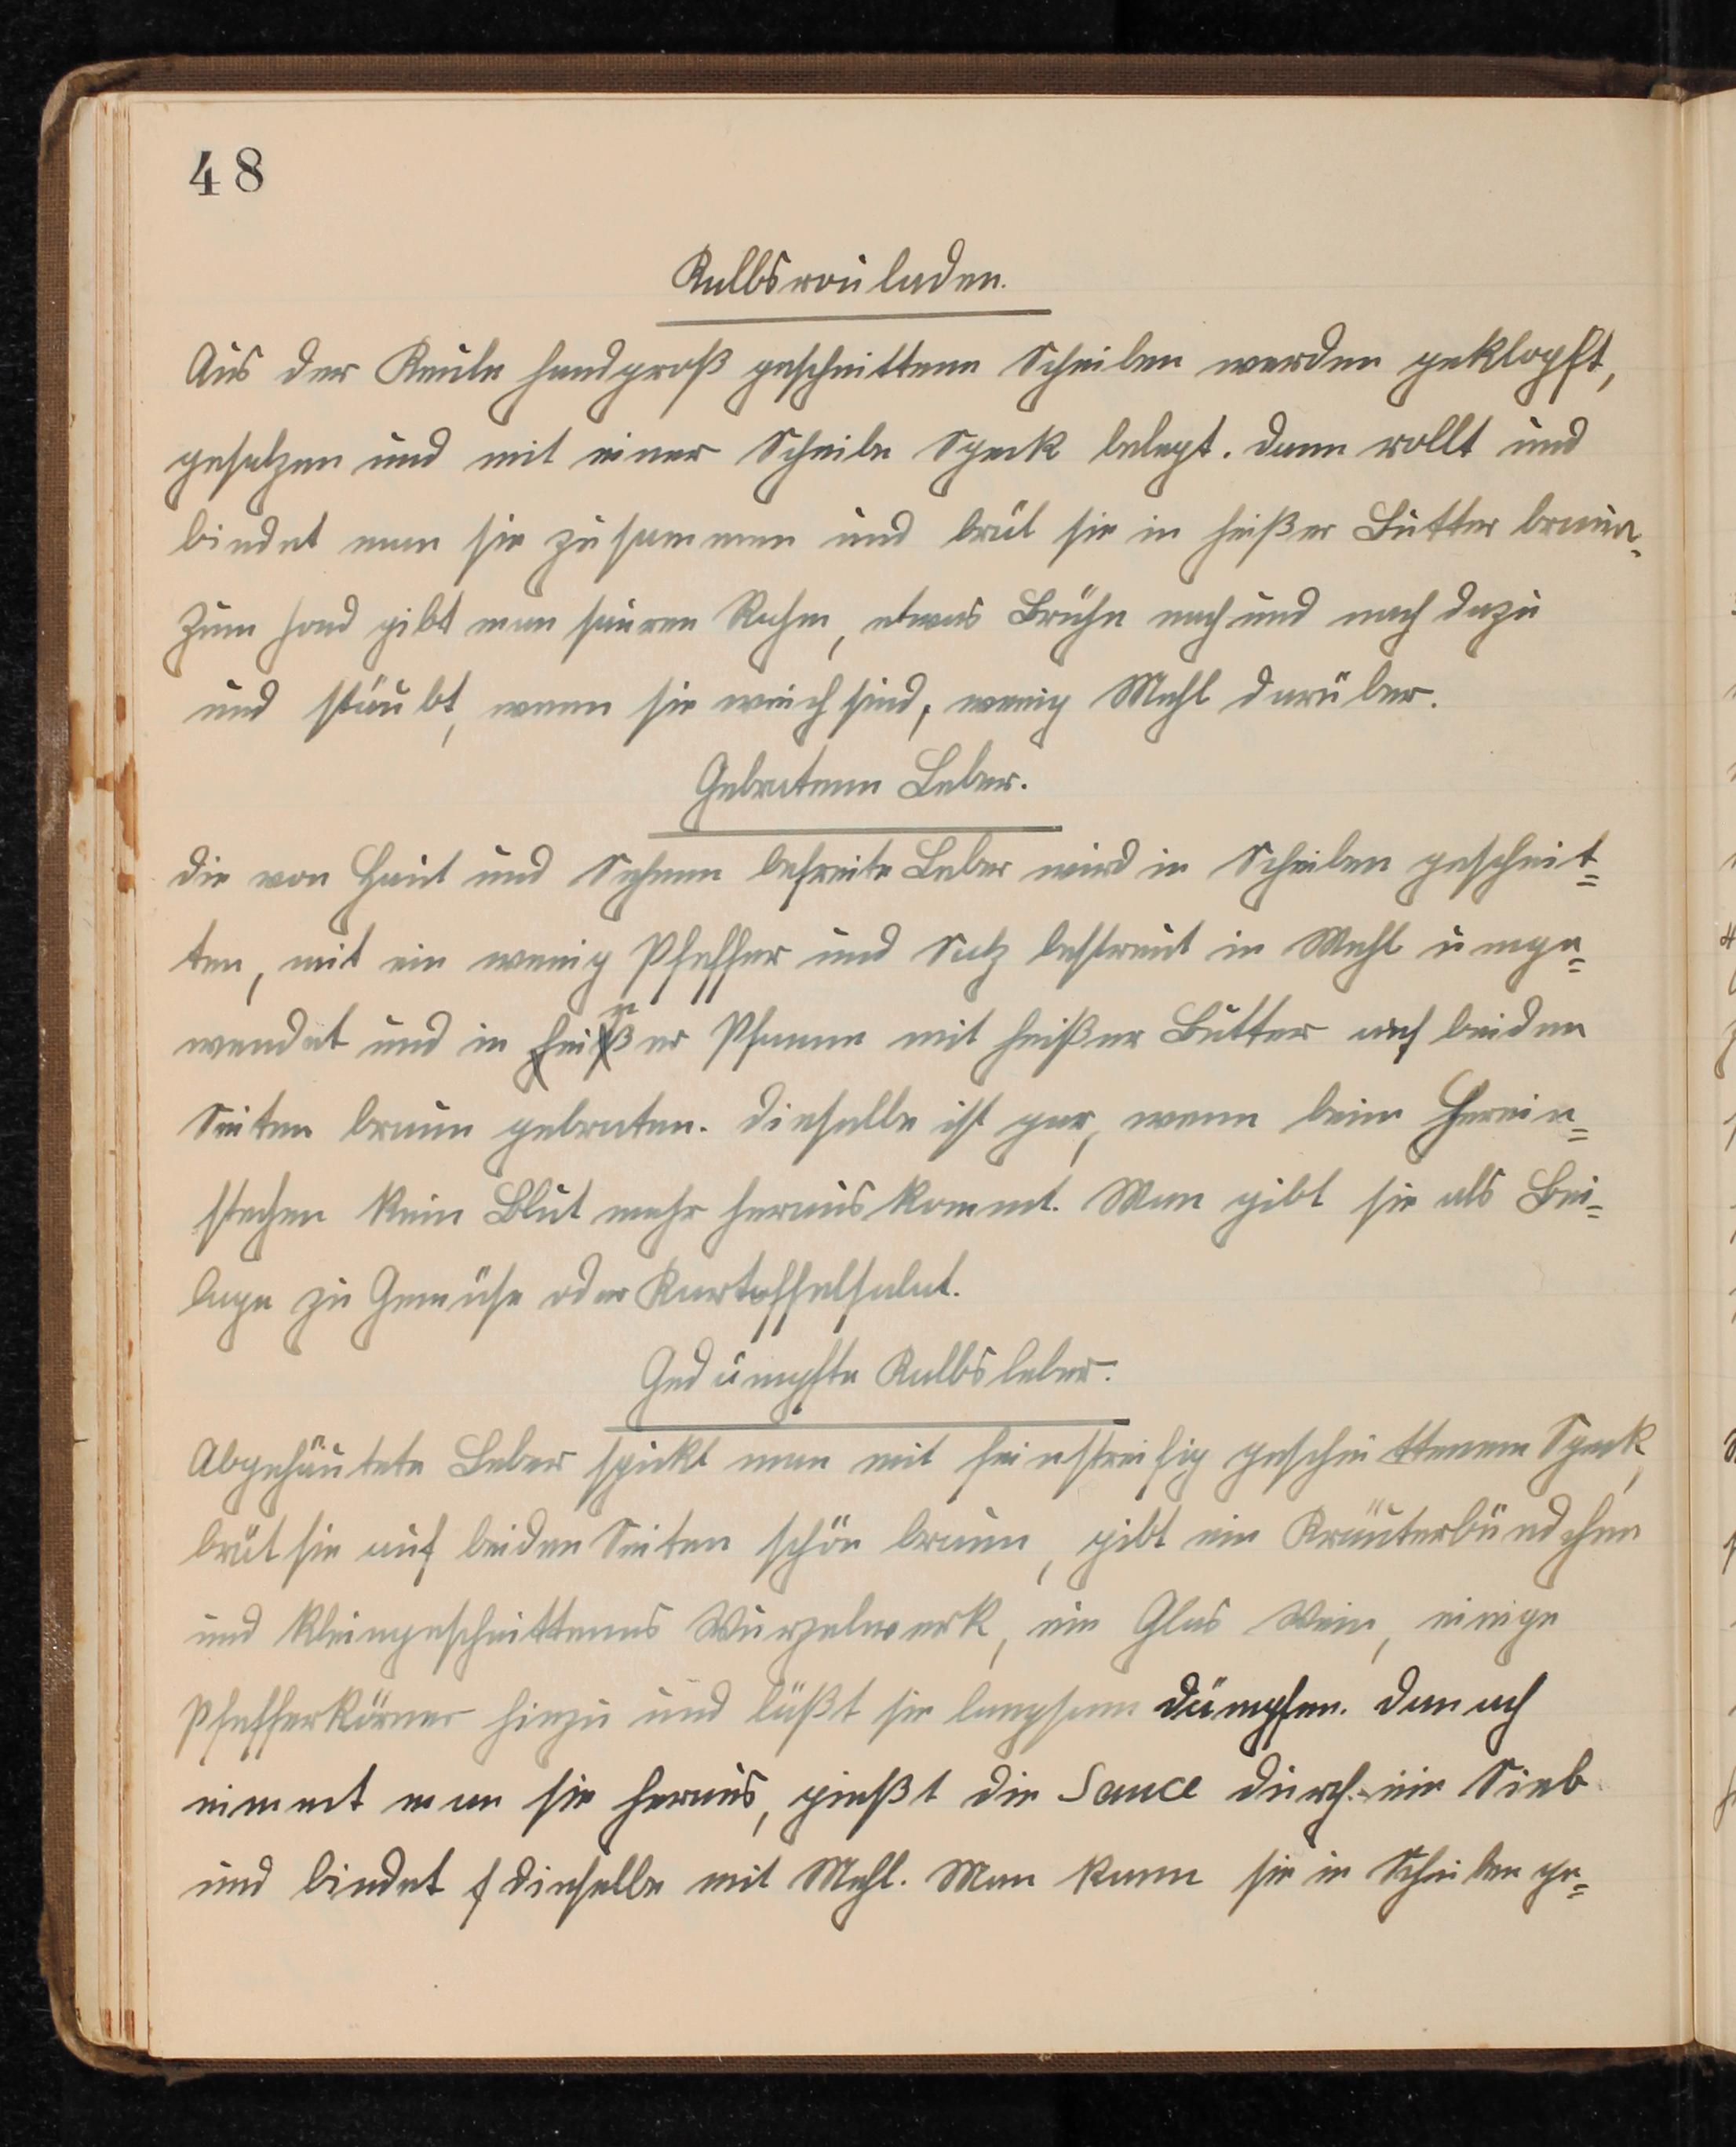 48
Kalbsrouladen.
Aus der Keule handgroß geschnittene Scheiben werden geklopft,
gesalzen und mit einer Scheibe Speck belegt. Dann rollt und
bindet man sie zusammen und brät sie in heißer Butter braun.
Zum Fond gibt man sauren Rahm, etwas Brühe nach und nach dazu
und stäubt, wenn sie weich sind, wenig Mehl darüber.
Gebratene Leber.
Die von Haut und Sehnen befreite Leber wird in Scheiben geschnit=
ten, mit ein wenig Pfeffer und Salz bestreut in Mehl umge=
wendet und in einer Pfanne mit heißer Butter auf beiden
Seiten braun gebraten. Dieselbe ist gar, wenn beim Herein=
stechen kein Blut mehr herauskommt. Man gibt sie als Bei=
lage zu Gemüse oder Kartoffelsalat.
Gedämpfte Kalbsleber.
Abgehäutete Leber spickt man mit feinstreifig geschnittenem Speck,
brät sie auf beiden Seiten schön braun, gibt ein Kräuterbündchen
und kleingeschnittenes Wurzelwerk, ein Glas Wein, einige
Pfefferkörner hinzu und läßt sie langsam dämpfen. Danach
nimmt man sie heraus, gießt die Sauce durch ein Sieb
und bindet dieselbe mit Mehl. Man kann sie in Scheiben ge=